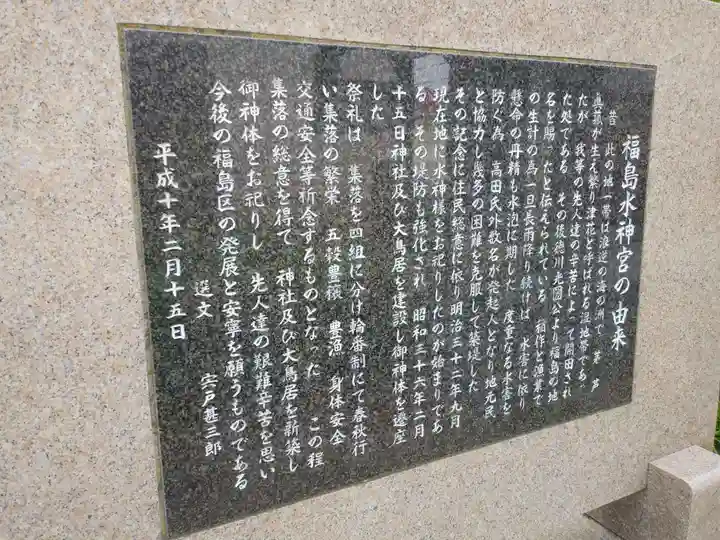 福島水神宮の由来
昔 此の地一帯は浪逆の海の洲で 茅 芦
真菰が生え繁り津花と呼ばれる湿地帯であっ
たが 我等の先人達の辛苦によって開田され
た処である その後徳川光圀公より福島の地
名を賜ったと伝えられている 稲作と漁業で
の生計の為一旦長雨降り続けば 水害に依り
懸命の丹精も水泡に期した 度重なる水害を
防ぐ為 高田氏外数名が発起人となり地元民
と協力し幾多の困難を克服して築堤した
その記念に住民総意に依り明治三十二年九月
現在地に水神様をお祀りしたのが始まりであ
る その堤防も強化され 昭和三十六年二月
十五日神社及び大鳥居を建設し御神体を遷座
した
祭礼は 集落を四組に分け輪番制にて春秋行
い集落の繁栄 五穀豊穣 豊漁 身体安全
交通安全等祈念するものとなった この程
集落の総意を得て 神社及び大鳥居を新築し
御神体をお祀りし 先人達の艱難辛苦を思い
今後の福島区の発展と安寧を願うものである
選文 宍戸甚三郎
平成十年二月十五日